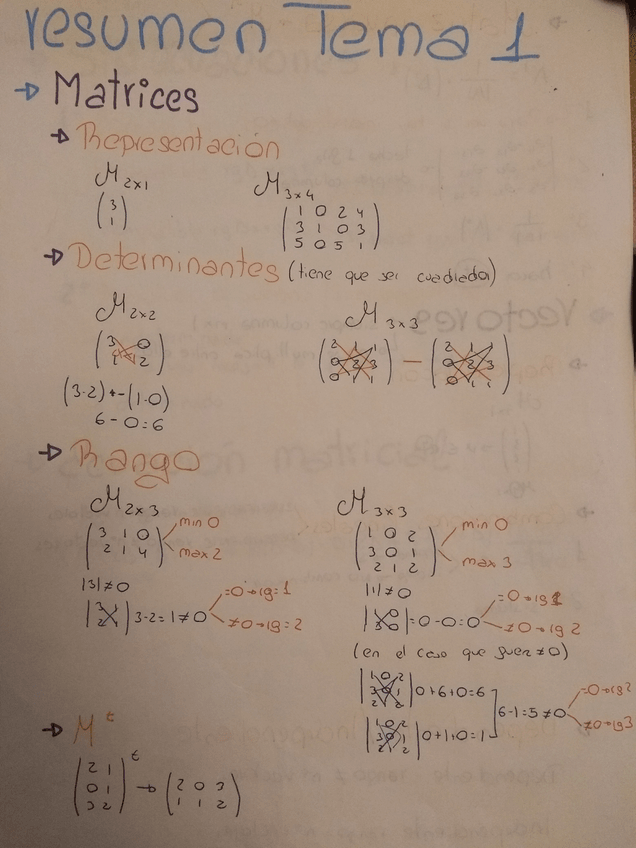 resumen Tema 1
→ Matrices
→ Representación
M2x1
(3
1)
M3x4
(1 0 2 4
3 1 0 3
5 0 5 1)
→ Determinantes (tiene que ser cuadrada)
M2x2
(3 0
1 2)
(3·2) + - (1·0)
6 - 0 = 6
M3x3
(2 1 1
0 2 3
0 1 1) - (2 1 1
0 2 3
0 1 1)
→ Rango
M2x3
(3 1 0
2 1 4)
min 0
max 2
|3| ≠ 0
|3 1
2 1| 3-2 = 1 ≠ 0
=0 → rg = 1
≠0 → rg = 2
M3x3
(1 0 2
3 0 1
2 1 2)
min 0
max 3
|1| ≠ 0
|1 0
3 0| = 0 - 0 = 0
=0 → rg 1
≠0 → rg 2
(en el caso que fuera ≠ 0)
|1 0 2
3 0 1
2 1 2| 0 + 6 + 0 = 6
|1 0 2
3 0 1
2 1 2| 0 + 1 + 0 = 1
6 - 1 = 5 ≠ 0
=0 → rg 2
≠0 → rg 3
→ M^t
(2 1
0 1
3 2)^t → (2 0 3
1 1 2)